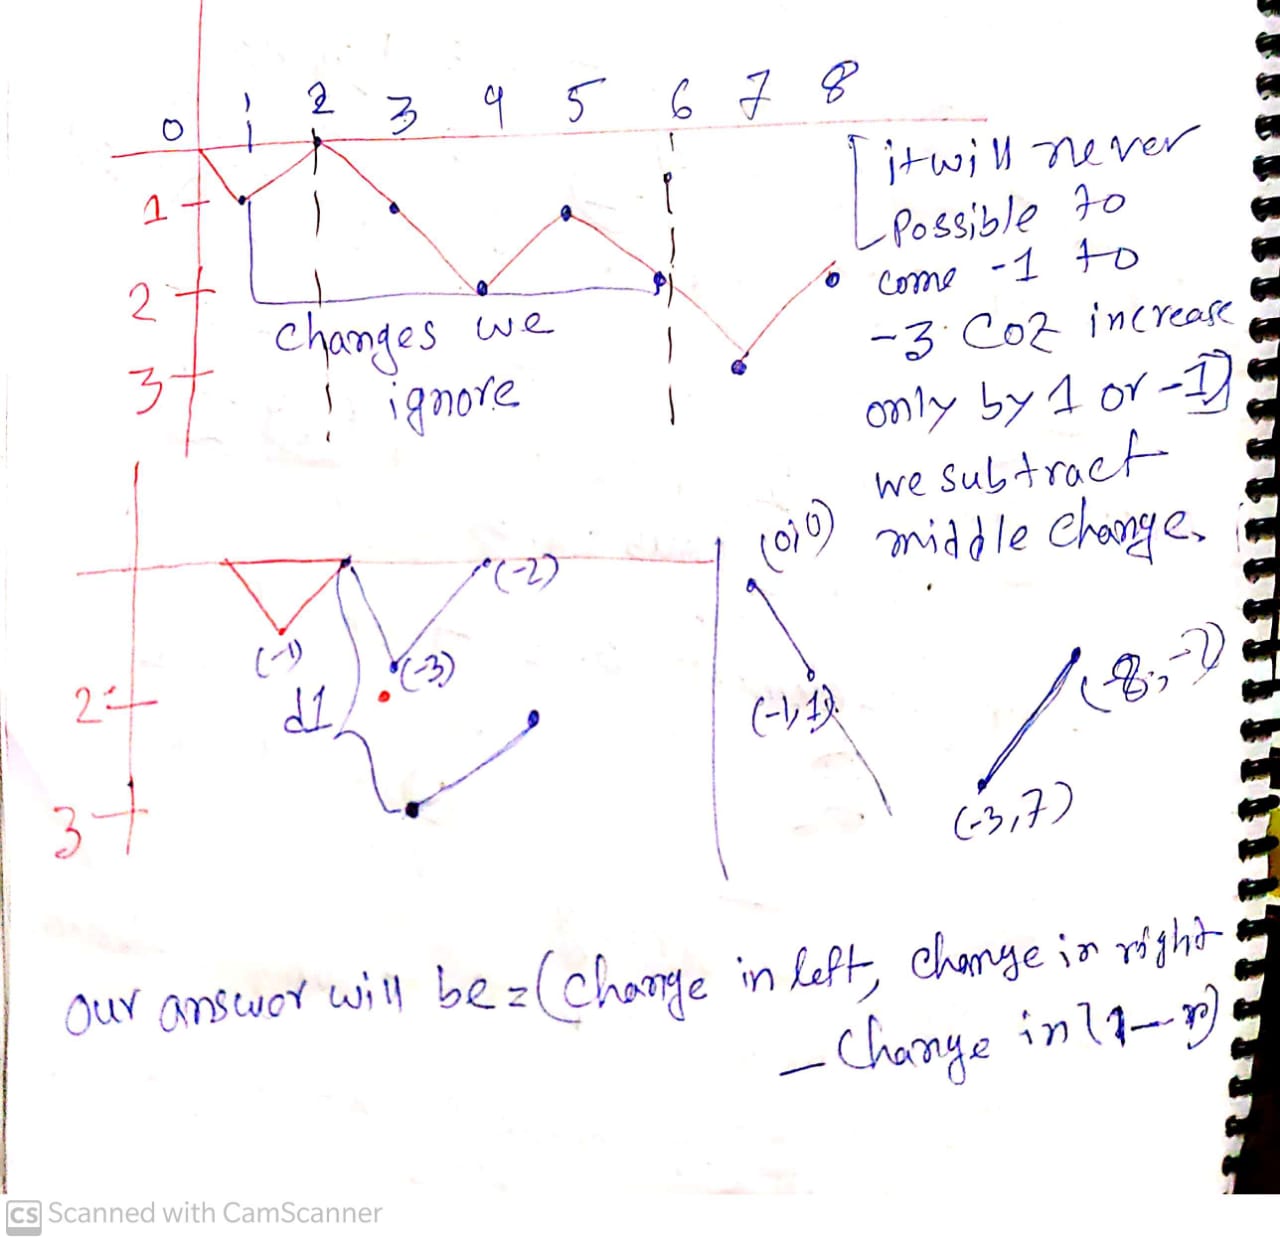 0 1 2 3 4 5 6 7 8
1
2
3
changes we
ignore
[it will never
Possible to
come -1 to
-3 Coz increase
only by 1 or -1]
we subtract
middle change.
(-1)
(-2)
(-3)
d1
2
3
(0,0)
(-1,1)
(-3,7)
our answor will be = (change in left, change in right
- change in
CS Scanned with CamScanner